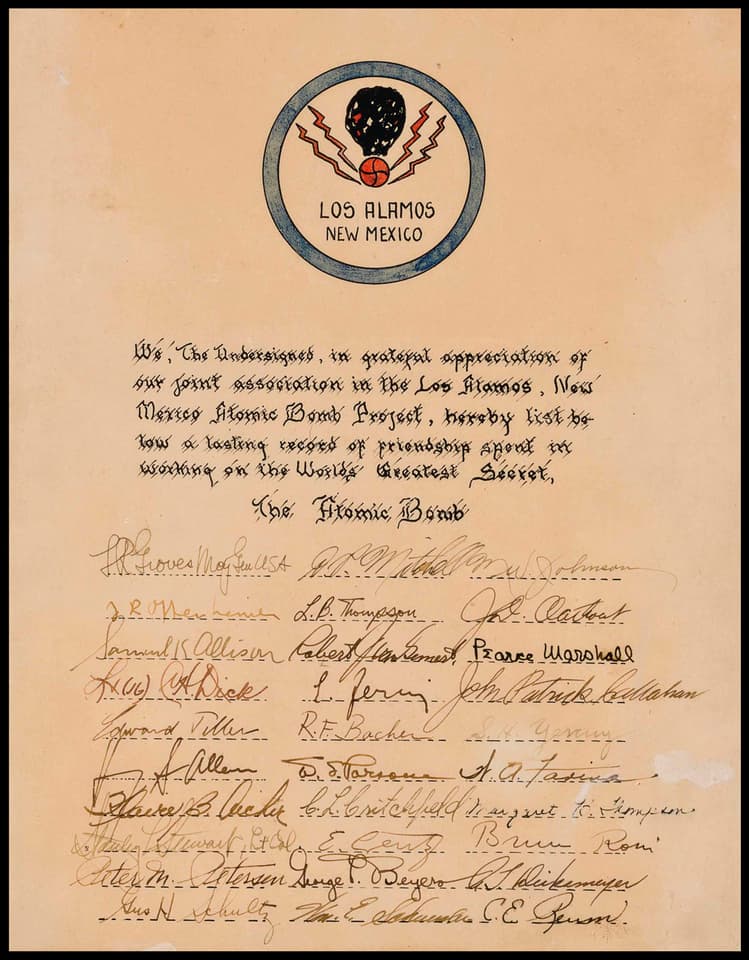 LOS ALAMOS
NEW MEXICO
We, The Undersigned, in grateful appreciation of
our joint association in the Los Alamos, New
Mexico Atomic Bomb Project, hereby list be-
low a lasting record of friendship spent in
working on the Worlds Greatest Secret,
The Atomic Bomb
LR Groves Maj Gen USA Johnson
J R Oppenheimer L.B. Thompson
Samuel K Allison Robert Pearce Marshall
Dick E. Fermi John Patrick Callahan
Edward Teller R.F. Bacher
Allen W. S. Parsons
B. C. L. Critchfield Margaret H. Thompson
Stewart, Lt Col. Bruno Rossi
Peter M. Petersen George P.
Gus H Schultz Wm. E. C. E.